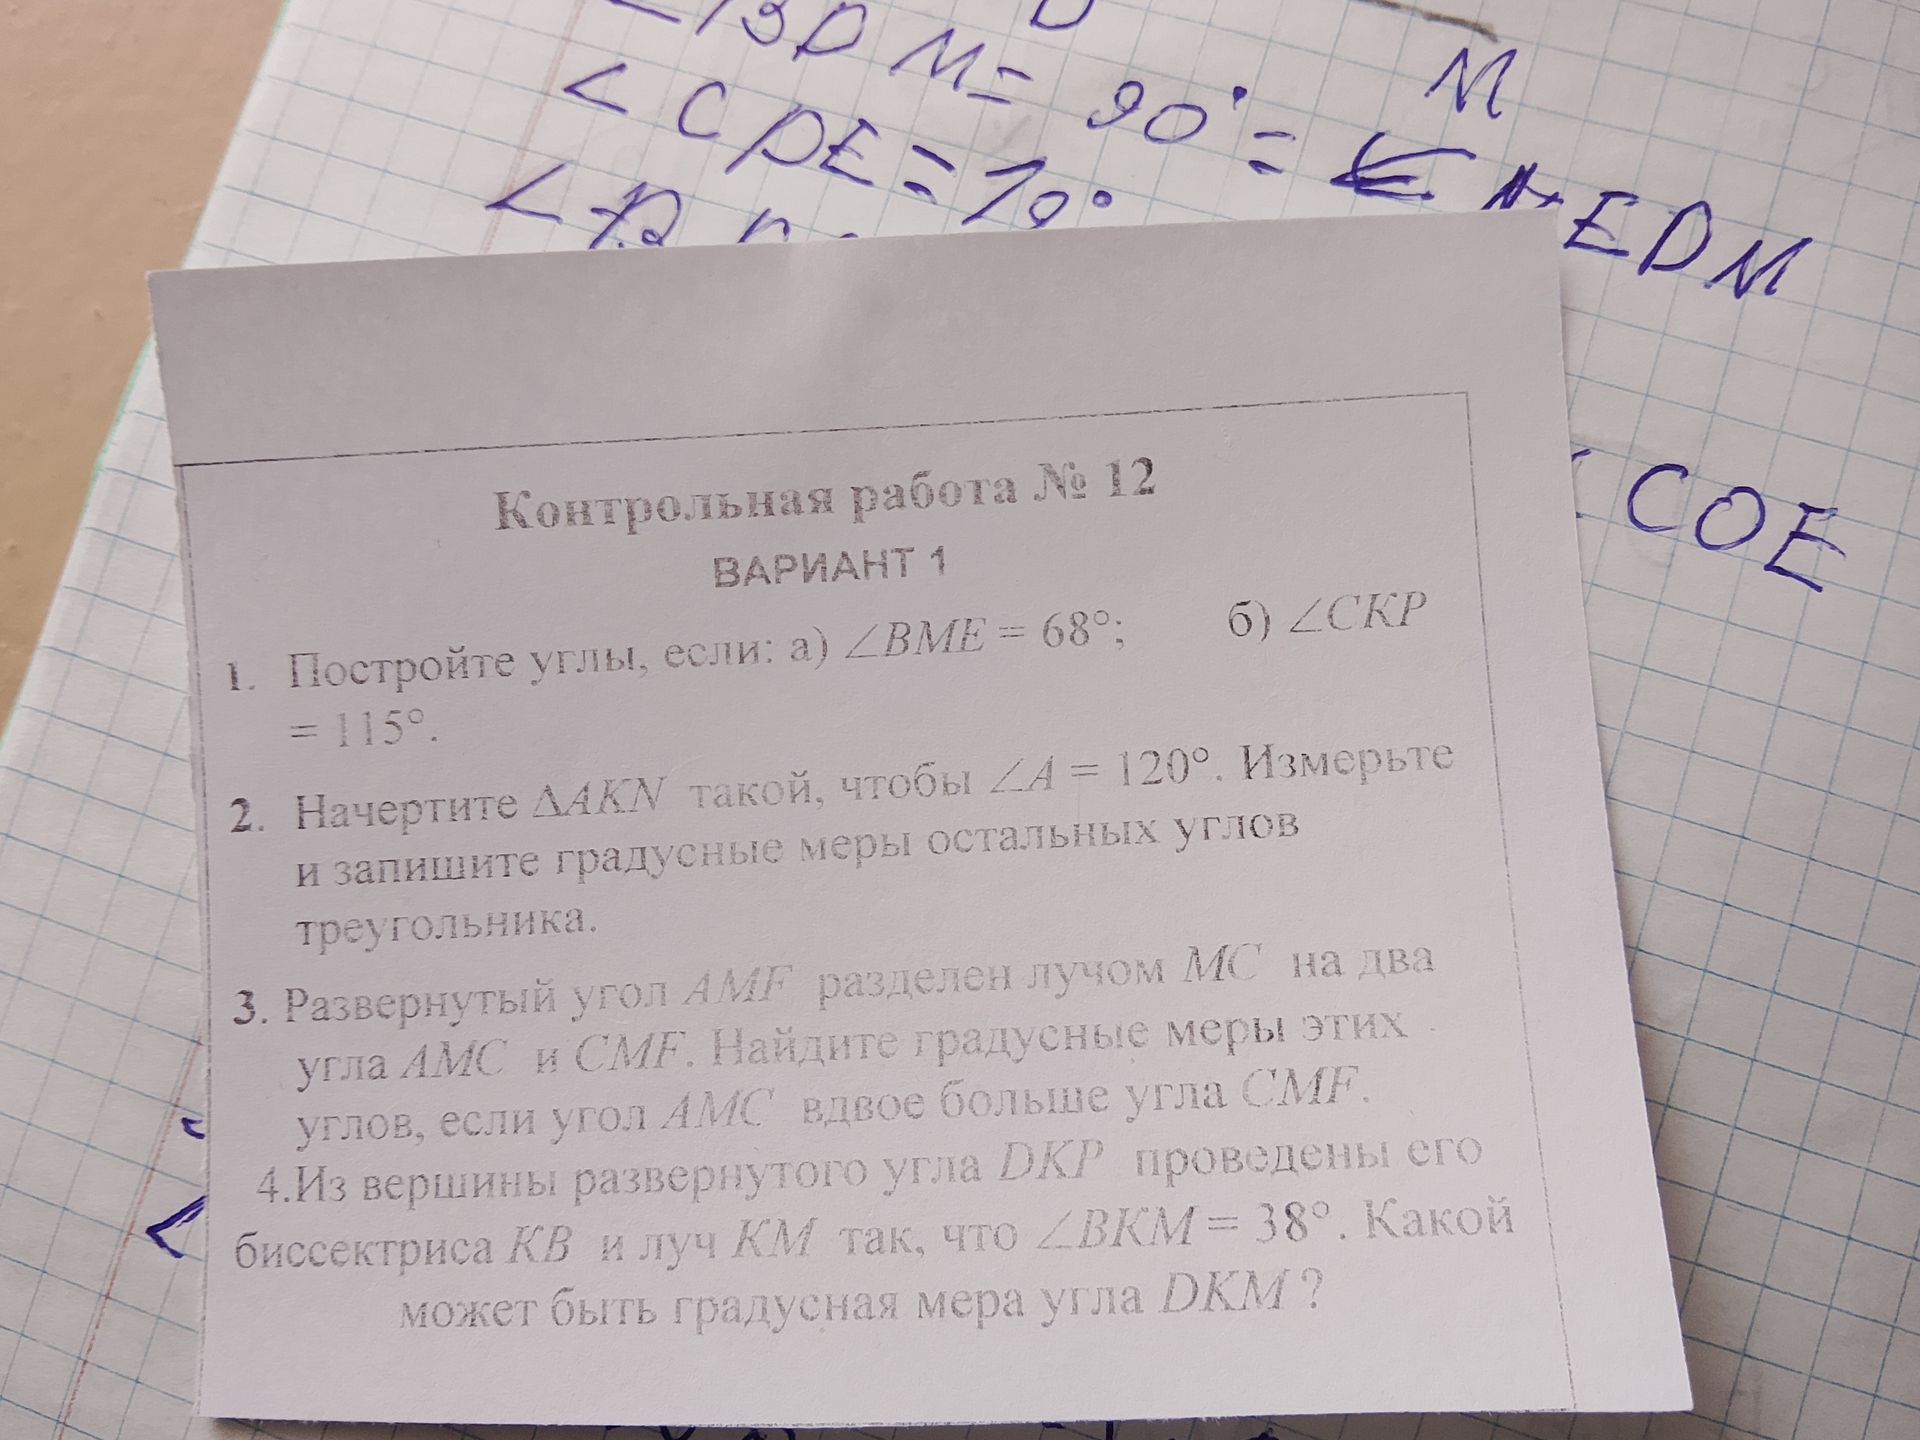 M
∠CDE = 90° =
∠EDM
COE
Контрольная работа № 12
ВАРИАНТ 1
1. Постройте углы, если: а) ∠BME = 68°; б) ∠CKP
= 115°.
2. Начертите ΔAKN такой, чтобы ∠A = 120°. Измерьте
и запишите градусные меры остальных углов
треугольника.
3. Развернутый угол AMF разделен лучом MC на два
угла AMC и CMF. Найдите градусные меры этих
углов, если угол AMC вдвое больше угла CMF.
4.Из вершины развернутого угла DKP проведены его
биссектриса KB и луч KM так, что ∠BKM = 38°. Какой
может быть градусная мера угла DKM ?